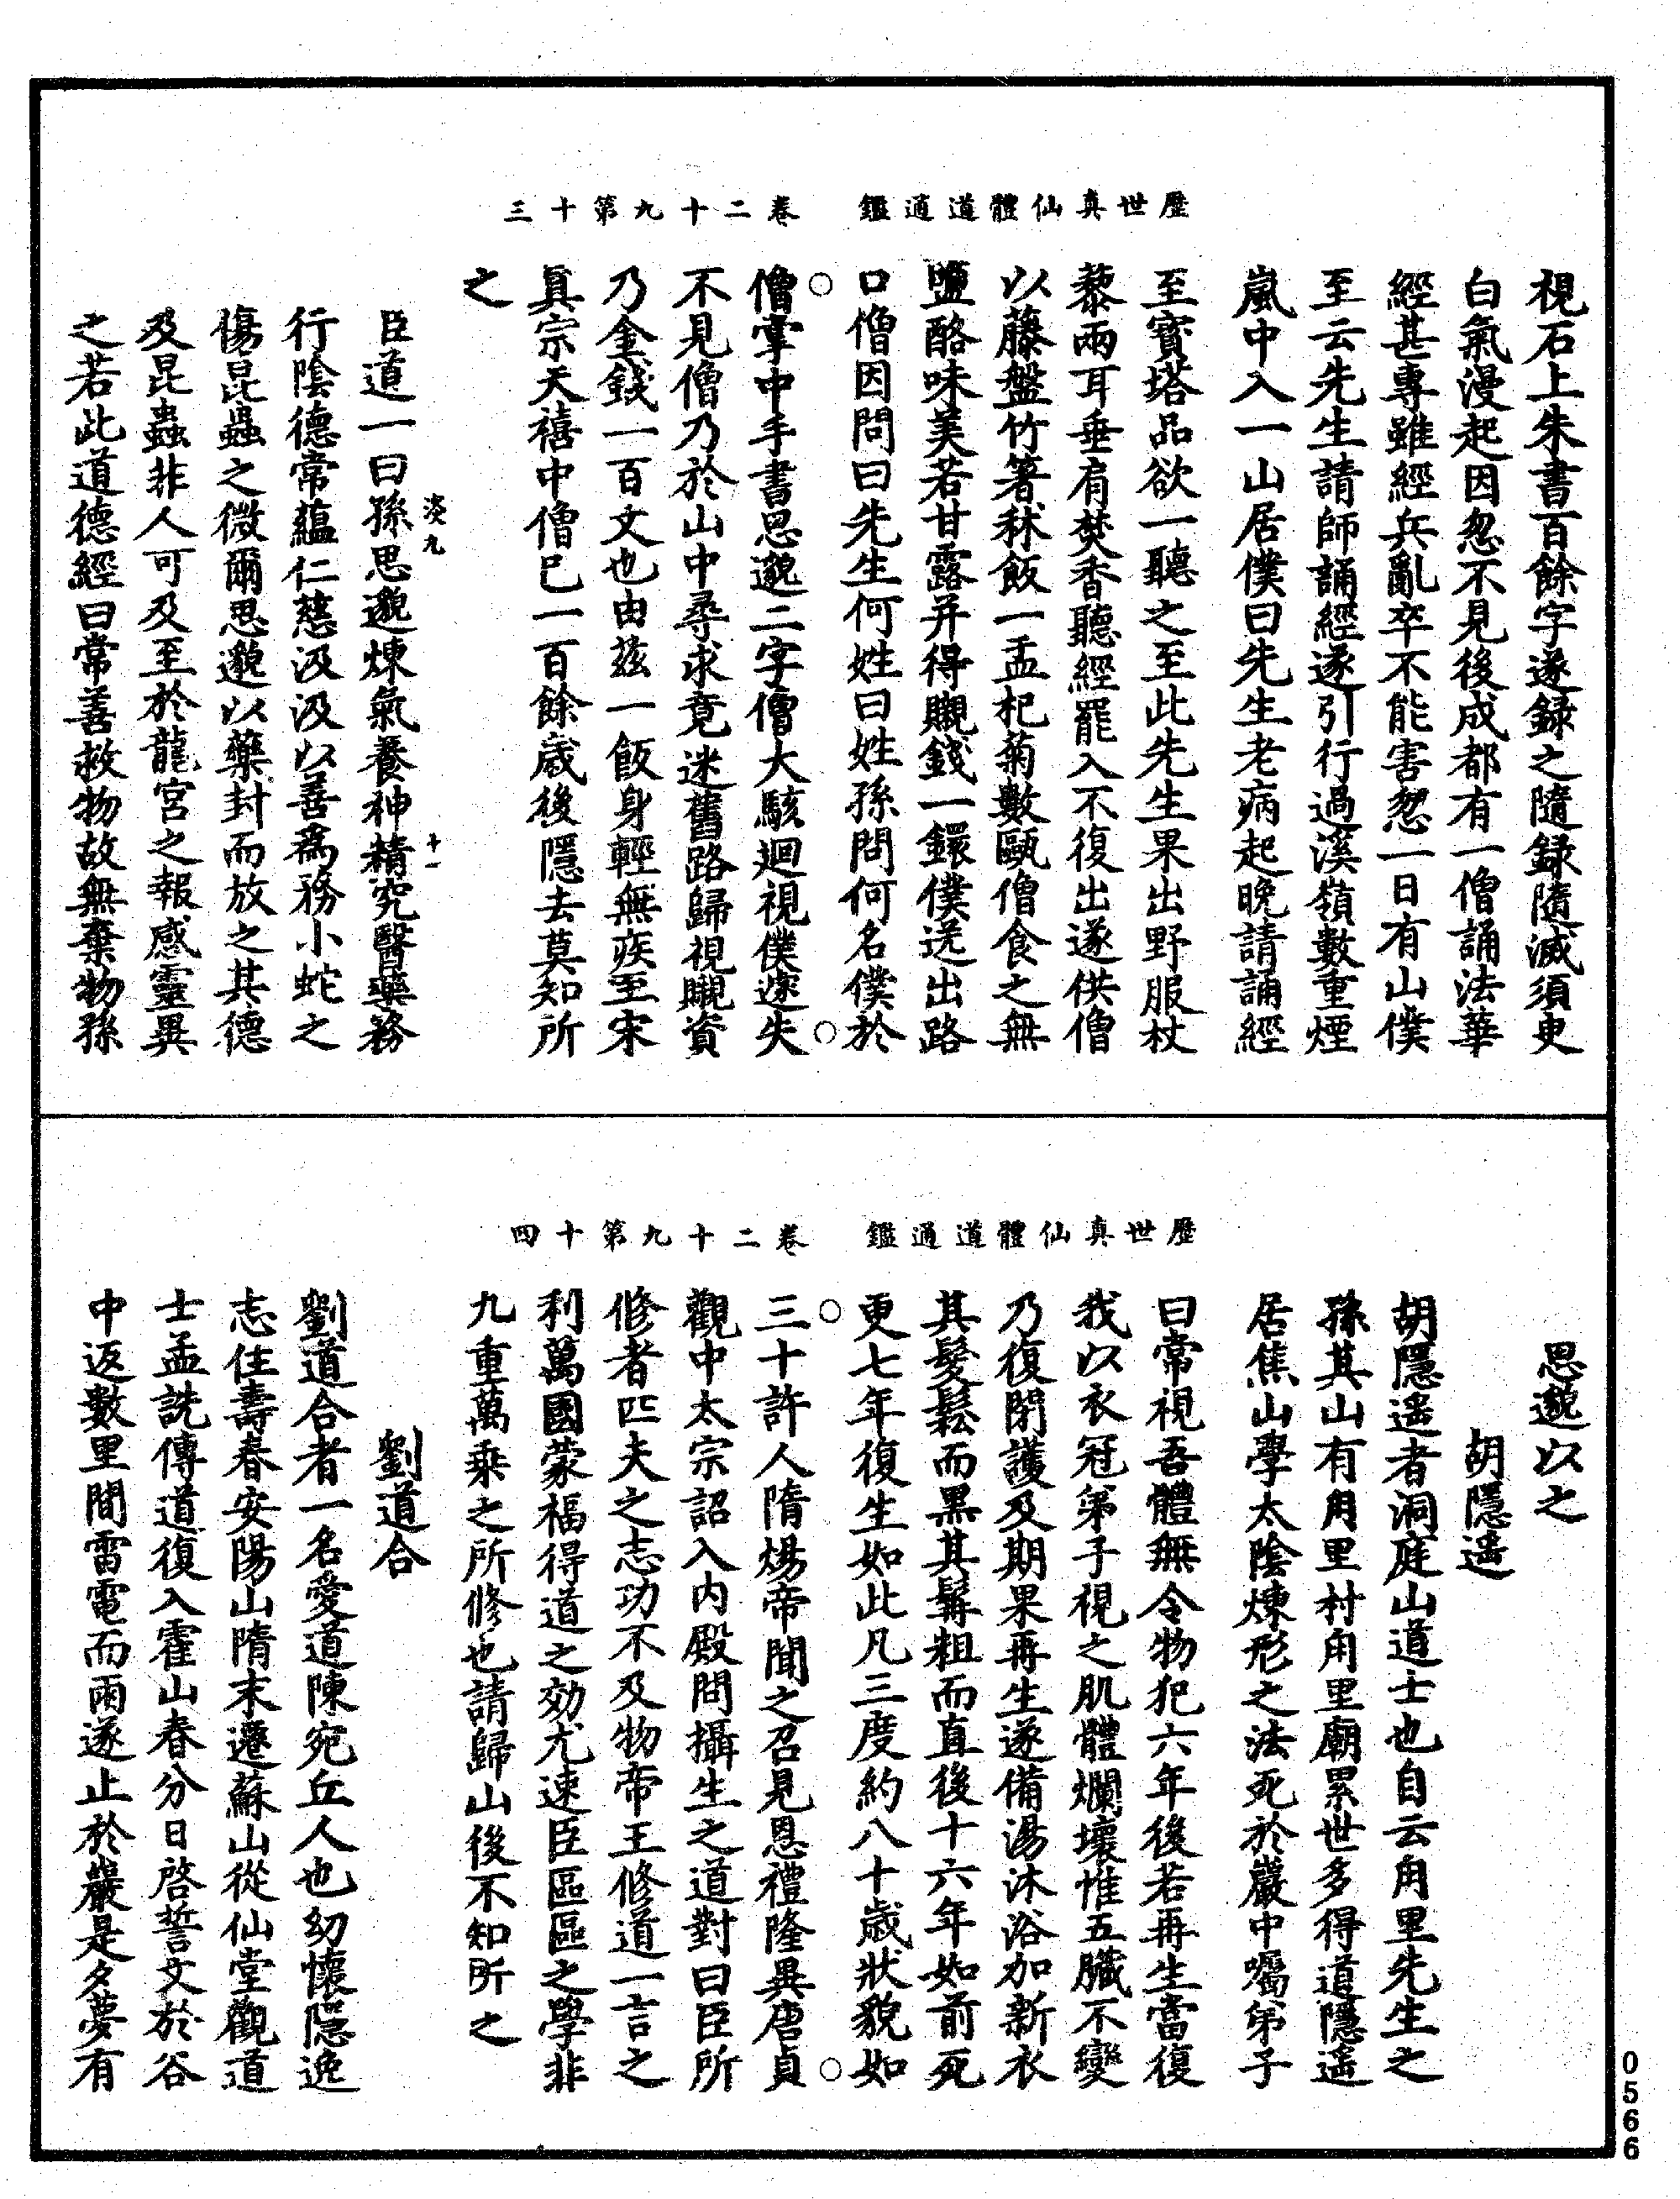 歷世真仙體道通鑑　卷二十九第十三
視石上朱書百餘字遂録之隨録隨滅須臾
白氣漫起因忽不見後成都有一僧誦法華
經甚專雖經兵亂卒不能害忽一日有山僕
至云先生請師誦經遂引行過溪嶺數重煙
嵐中入一山居僕曰先生老病起晚請誦經
至寶塔品欲一聽之至此先生果出野服杖
藜兩耳垂肩焚香聽經罷入不復出遂供僧
以藤盤竹箸秫飯一盂杞菊數甌僧食之無
鹽酪味美若甘露并得瞡錢一鐶僕送出路
口僧因問曰先生何姓曰姓孫問何名僕於
僧掌中手書思邈二字僧大駭迴視僕遽失
不見僧乃於山中尋求竟迷舊路歸視瞡資
乃金錢一百文也由兹一飯身輕無疾至宋
真宗天禧中僧已一百餘歲後隱去莫知所
之
臣道一曰孫思邈煉氣養神精究醫藥務
淡九
十一
行陰德常蘊仁慈汲汲以善爲務小蛇之
傷昆蟲之微爾思邈以藥封而放之其德
及昆蟲非人可及至於龍宮之報感靈異
之若此道德經曰常善救物故無棄物孫
歷世真仙體道通鑑　卷二十九第十四
思邈以之
胡隱遥
胡隱遥者洞庭山道士也自云甪里先生之
孫其山有甪里村甪里廟累世多得道隱遥
居焦山學太陰煉形之法死於巖中囑弟子
曰常視吾體無令物犯六年後若再生當復
我以衣冠弟子視之肌體爛壞惟五臟不變
乃復閉護及期果再生遂備湯沐浴加新衣
其髮鬆而黑其髯粗而直後十六年如前死
更七年復生如此凡三度約八十歲狀貌如
三十許人隋煬帝聞之召見恩禮隆異唐貞
觀中太宗詔入内殿問攝生之道對曰臣所
修者匹夫之志功不及物帝王修道一言之
利萬國蒙福得道之効尤速臣區區之學非
九重萬乗之所修也請歸山後不知所之
劉道合
劉道合者一名愛道陳宛丘人也幼懷隱逸
志住壽春安陽山隋末遷蘇山從仙堂觀道
士孟詵傳道復入霍山春分日啓誓文於谷
中返數里間雷電而雨遂止於巖是夕夢有
0566